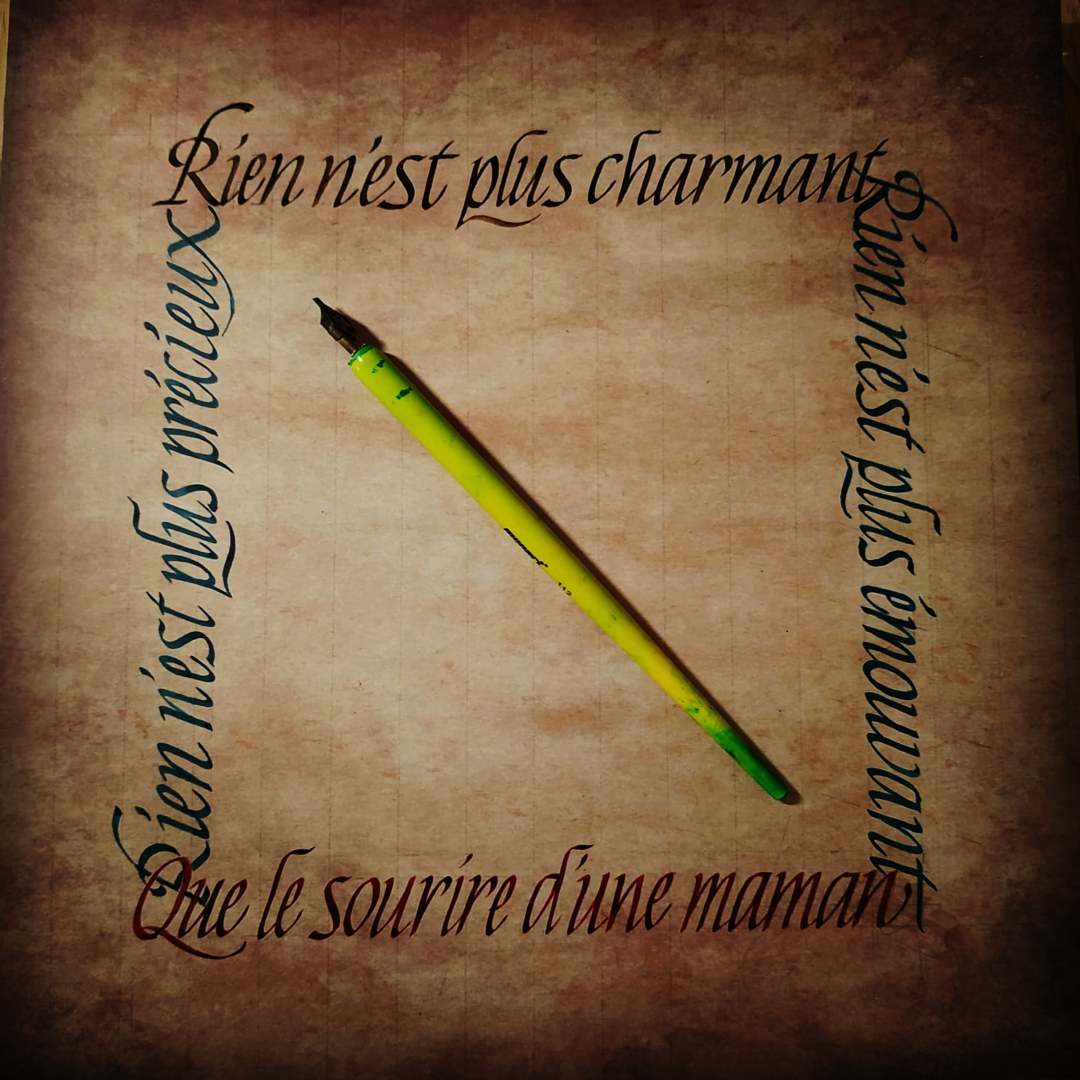 Rien n'est plus charmant
Rien n'est plus émouvant
Rien n'est plus précieux
Que le sourire d'une maman